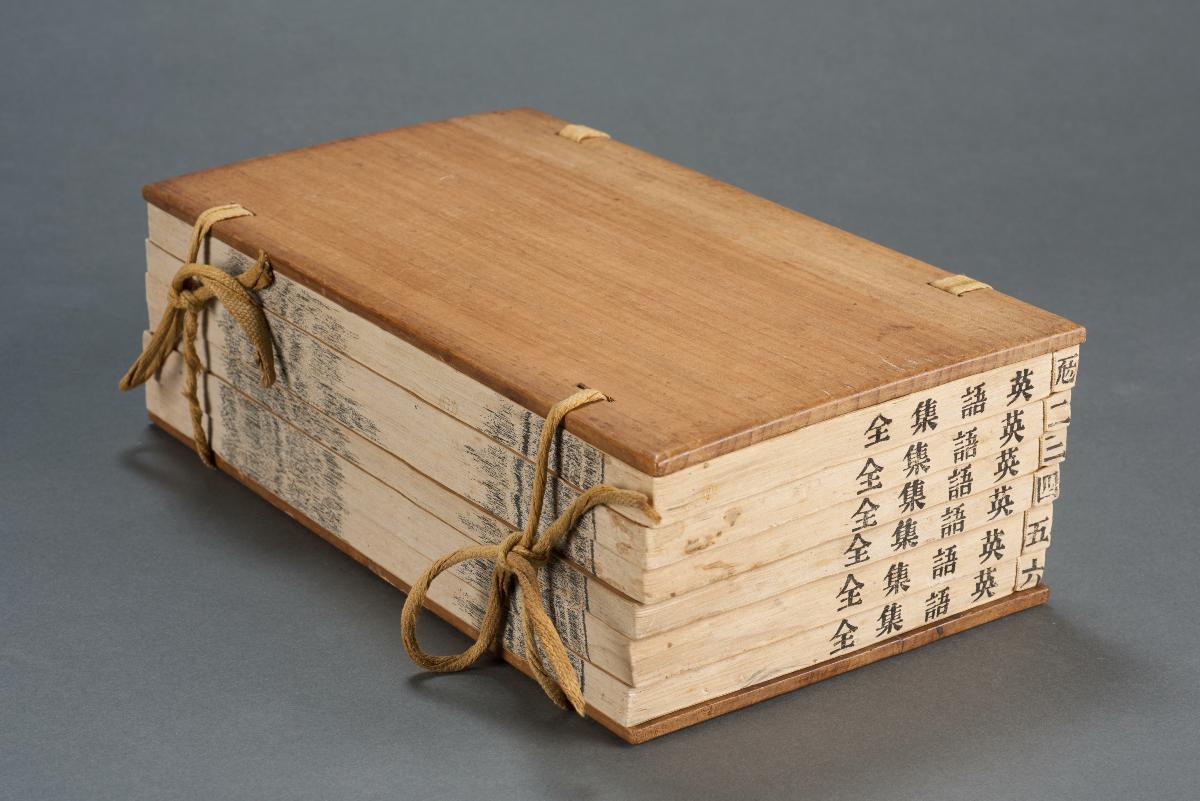 英語集全
二 英語集全
三 英語集全
四 英語集全
五 英語集全
六 英語集全